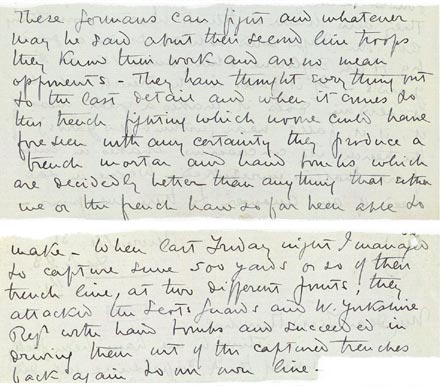 These Germans can fight and whatever
may be said about their second line troops
they know their work and are no mean
opponents - They have thought everything out
to the last detail and when it comes to
this trench fighting which no one could have
foreseen with any certainty they produce a
trench mortar and hand bombs which
are decidedly better than anything that either
we or the french have so far been able to
make - When last Friday night I managed
to capture some 500 yards or so of their
trench line, at two different points, they
attacked the Scots Guards and W. Yorkshire
Regt with hand bombs and succeeded in
driving them out of the captured trenches
back again to our own line -